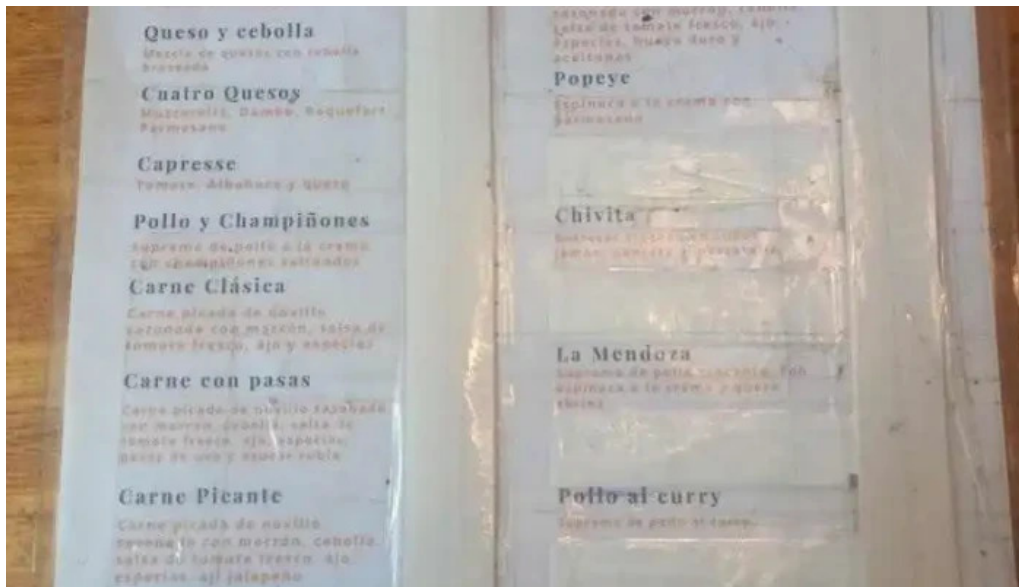 Queso y cebolla
Mezcla de quesos con cebolla
braseada
Cuatro Quesos
Muzzarella, Dambo, Roquefort,
Parmesano
Capresse
Tomate, Albahaca y queso
Pollo y Champiñones
Suprema de pollo a la crema
con champiñones salteados
Carne Clásica
Carne picada de novillo
sazonada con morrón, salsa de
tomate fresco, ajo y especias
Carne con pasas
Carne picada de novillo sazonada
con morrón, cebolla, salsa de
tomate fresco, ajo, especias,
pasas de uva y azúcar rubia
Carne Picante
Carne picada de novillo
sazonada con morrón, cebolla,
salsa de tomate fresco, ajo,
especias, ají jalapeño
sazonada con morrón, cebolla,
salsa de tomate fresco, ajo,
especias, huevo duro y
aceitunas
Popeye
Espinaca a la crema con
parmesano
Chivita
jamón, panceta y
La Mendoza
Suprema de pollo con
espinaca a la crema y queso
Pollo al curry
Suprema de pollo al curry